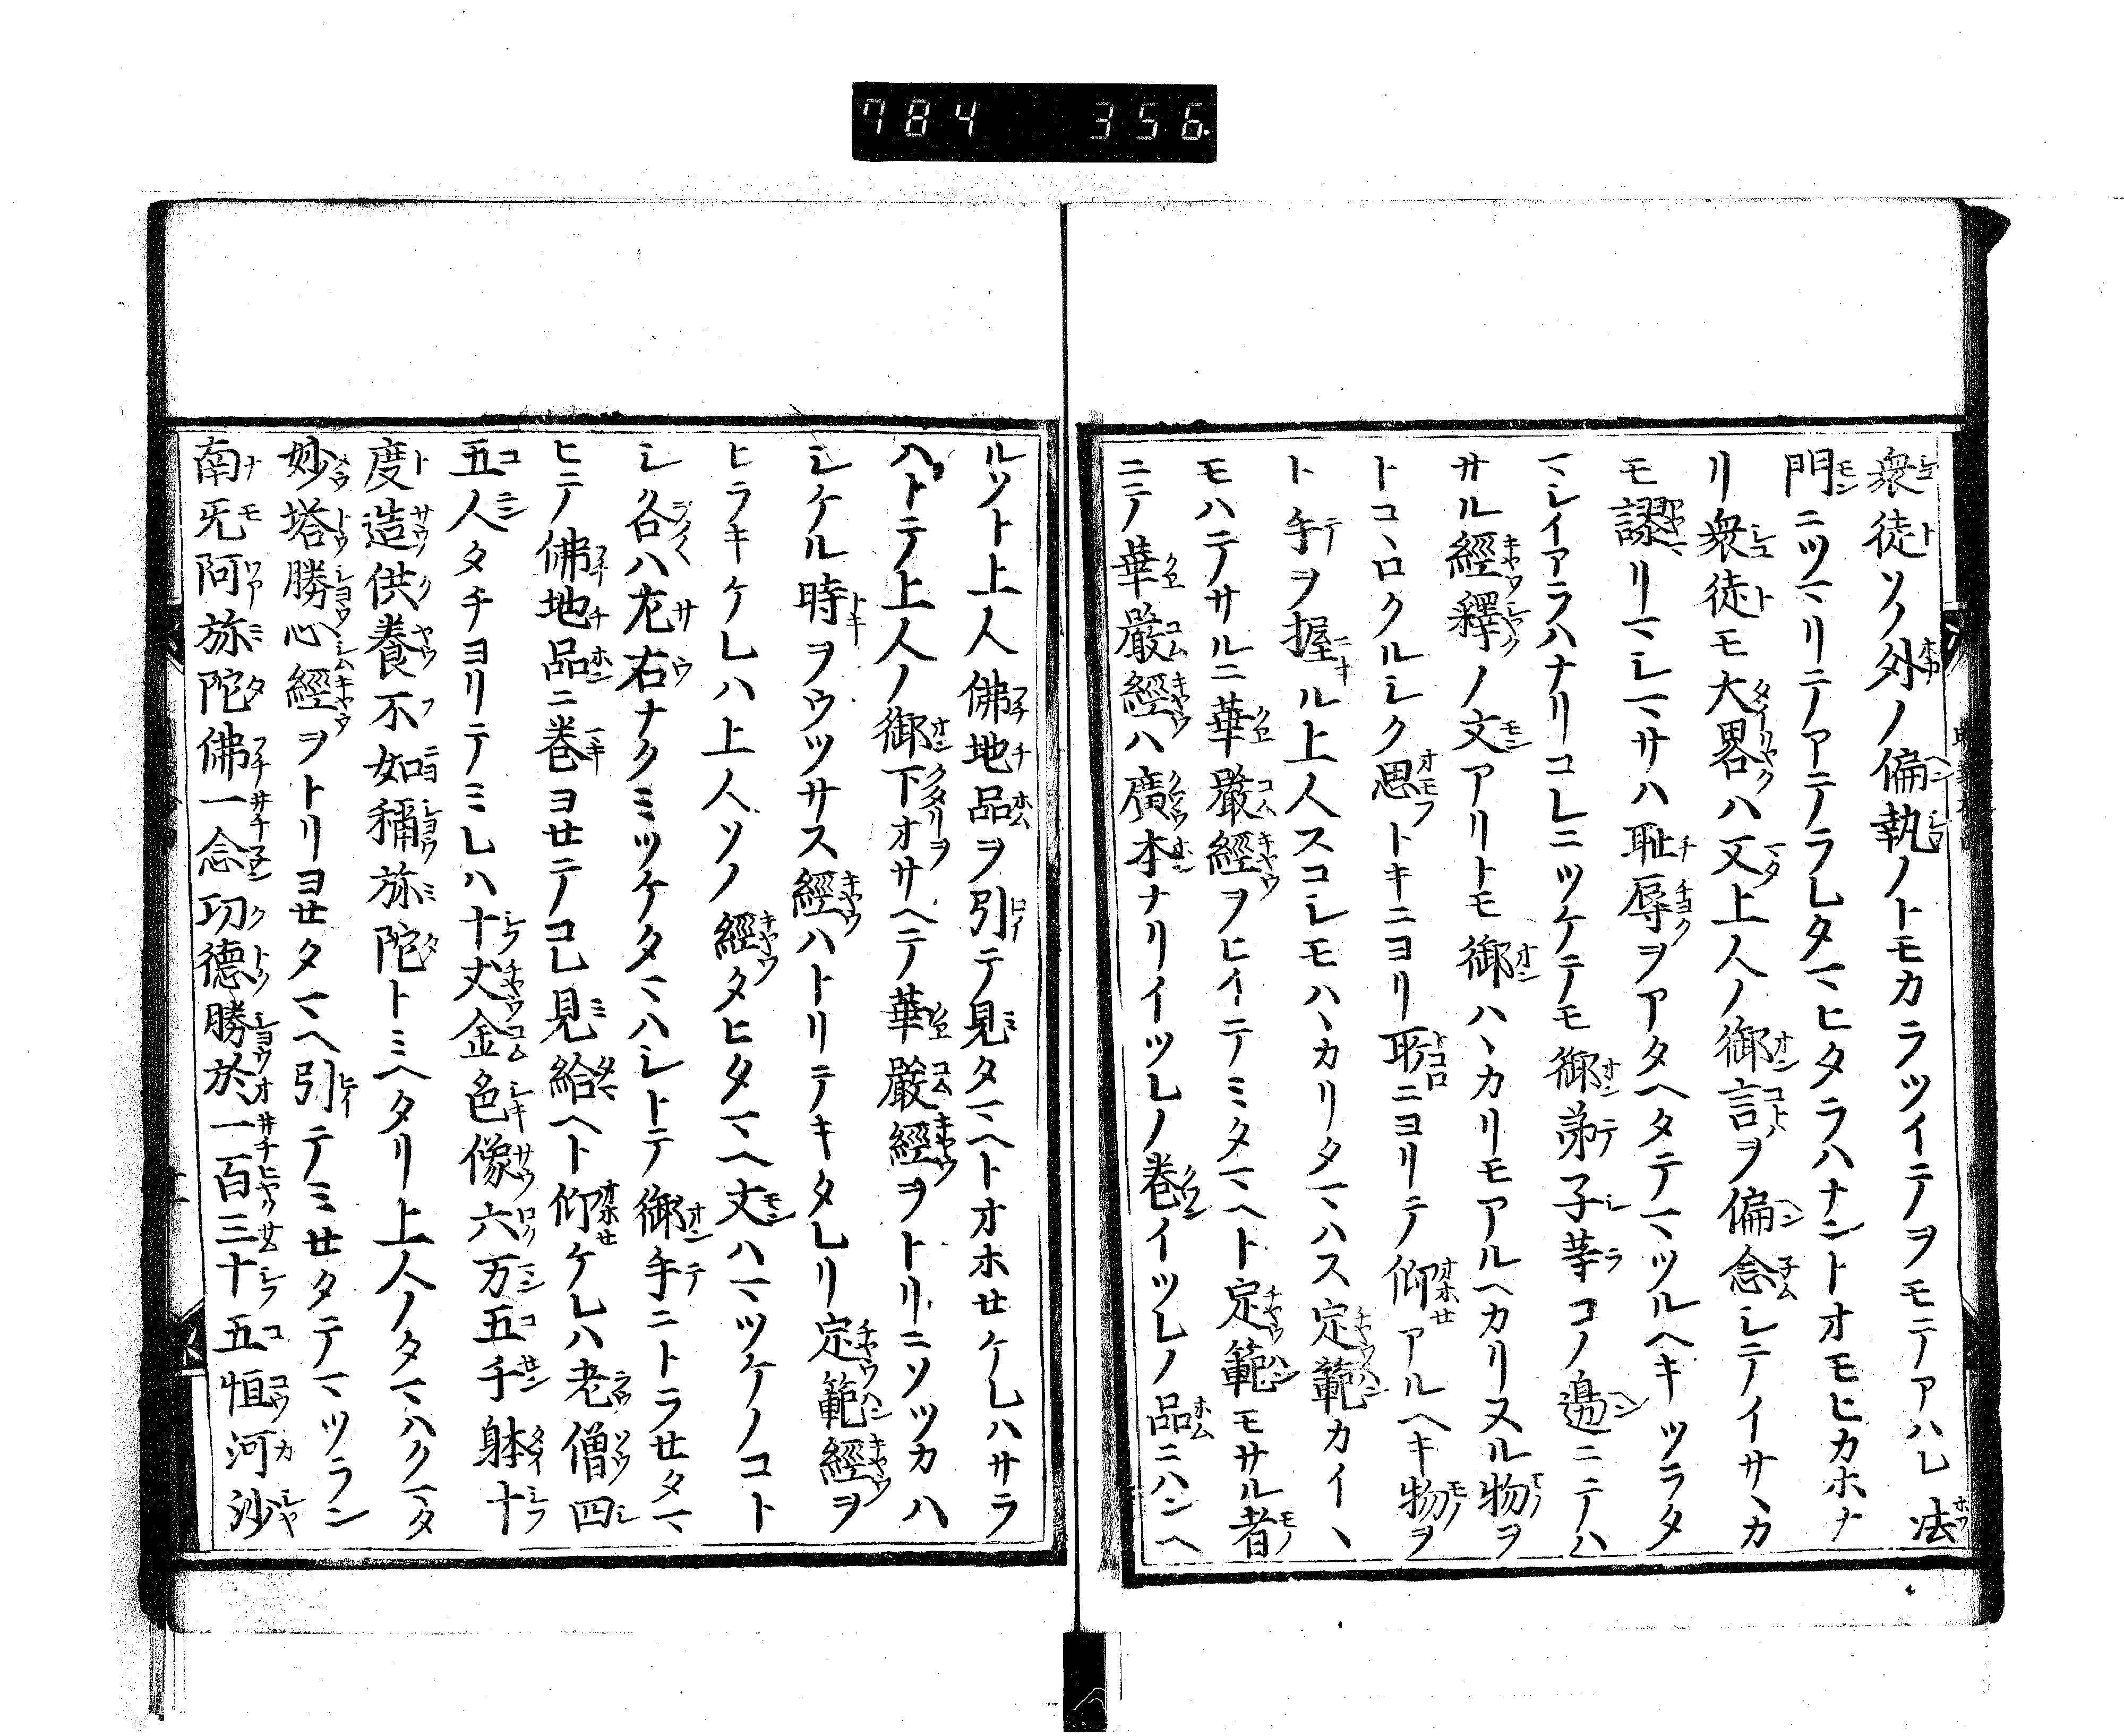 784 356
衆徒ソノ外ノ偏執ノトモカラツイテヲモテアハレ法
門ニツマリテアテラレタマヒタラハナントオモヒカホナ
リ衆徒モ大畧ハ又上人ノ御言ヲ偏念シテイサヽカ
モ謬リマシマサハ耻辱ヲアタヘタテマツルヘキツラタ
マシイアラハナリコレニツケテモ御弟子等コノ邊ニテハ
サル經釋ノ文アリトモ御ハヽカリモアルヘカリヌル物ヲ
トコヽロクルシク思トキニヨリ所ニヨリテ仰アルヘキ物ヲ
ト手ヲ握ル上人スコシモハヽカリタマハス定範カイヽ
モハテサルニ華嚴經ヲヒイテミタマヘト定範モサル者
ニテ華嚴經ハ廣本ナリイツレノ巻イツレノ品ニハンヘ
ルソト上人佛地品ヲ引テ見タマヘトオホセケレハサラ
ハトテ上人ノ御下オサヘテ華嚴經ヲトリニソツカハ
シケル時ヲウツサス經ハトリテキタレリ定範經ヲ
ヒラキケレハ上人ソノ經タヒタマヘ文ハマツケノコト
シ各ハ左右ナクミツケタマハシトテ御手ニトラセタマ
ヒテ佛地品ニ巻ヨセテコレ見給ヘト仰ケレハ老僧四
五人タチヨリテミレハ十丈金色像六万五千躰十
度造供養不如稱弥陀トミヘタリ上人ノタマハクマタ
妙塔勝心經ヲトリヨセタマヘ引テミセタテマツラン
南旡阿弥陀佛一念功德勝於一百三十五恒河沙